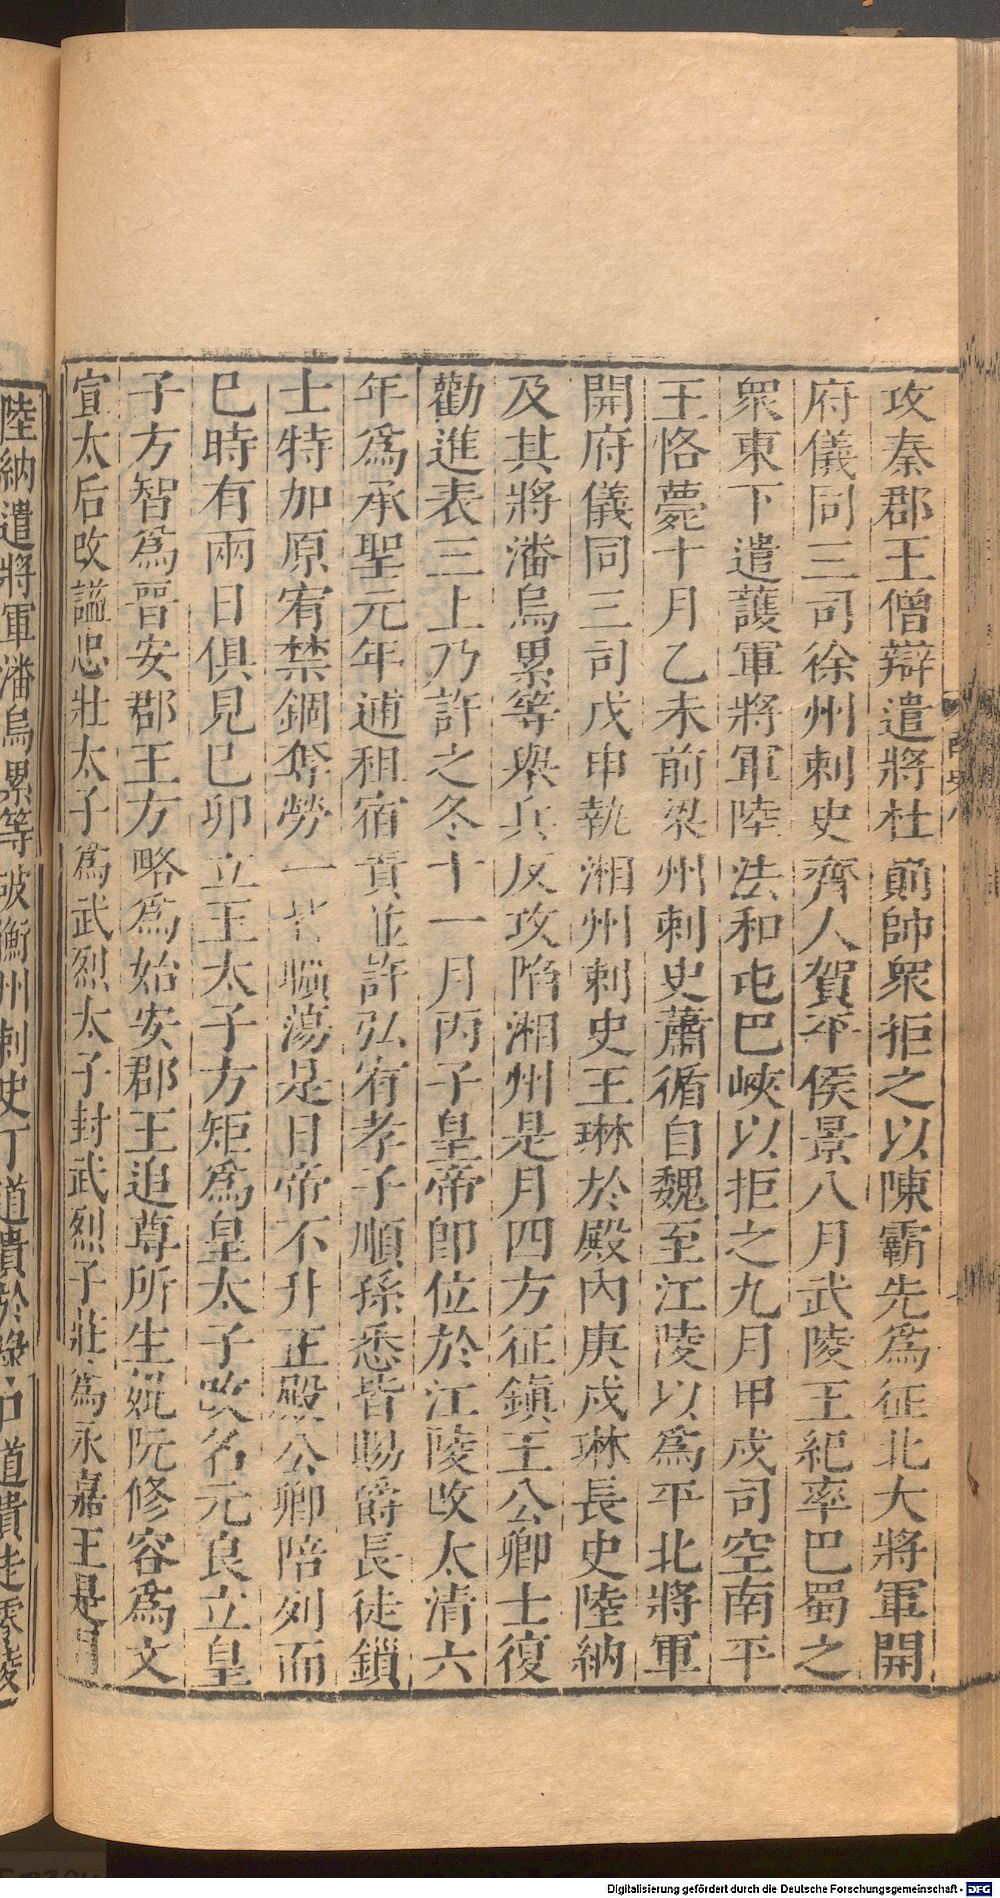 攻秦郡王僧辯遣將杜崱帥衆拒之以陳霸先爲征北大將軍開
府儀同三司徐州刺史齊人賀平侯景八月武陵王紀率巴蜀之
衆東下遣護軍將軍陸法和屯巴峽以拒之九月甲戌司空南平
王恪薨十月乙未前梁州刺史蕭循自魏至江陵以爲平北將軍
開府儀同三司戊申執湘州刺史王琳於殿內庚戌琳長史陸納
及其將潘烏累等舉兵反攻陷湘州是月四方征鎮王公卿士復
勸進表三上乃許之冬十一月丙子皇帝卽位於江陵改太清六
年爲承聖元年逋租宿責並許弘宥孝子順孫悉皆賜爵長徒鎖
士特加原宥禁錮奪勞一皆曠蕩是日帝不升正殿公卿陪列而
巳時有兩日俱見巳卯立王太子方矩爲皇太子改名元良立皇
子方智爲晉安郡王方略爲始安郡王追尊所生妣阮修容爲文
宣太后改諡忠壯太子爲武烈太子封武烈子莊爲永嘉王是月
陸納遣將軍潘烏累等破衡州刺史丁道貴於淥口道貴走零陵
Digitalisierung gefördert durch die Deutsche Forschungsgemeinschaft - DFG